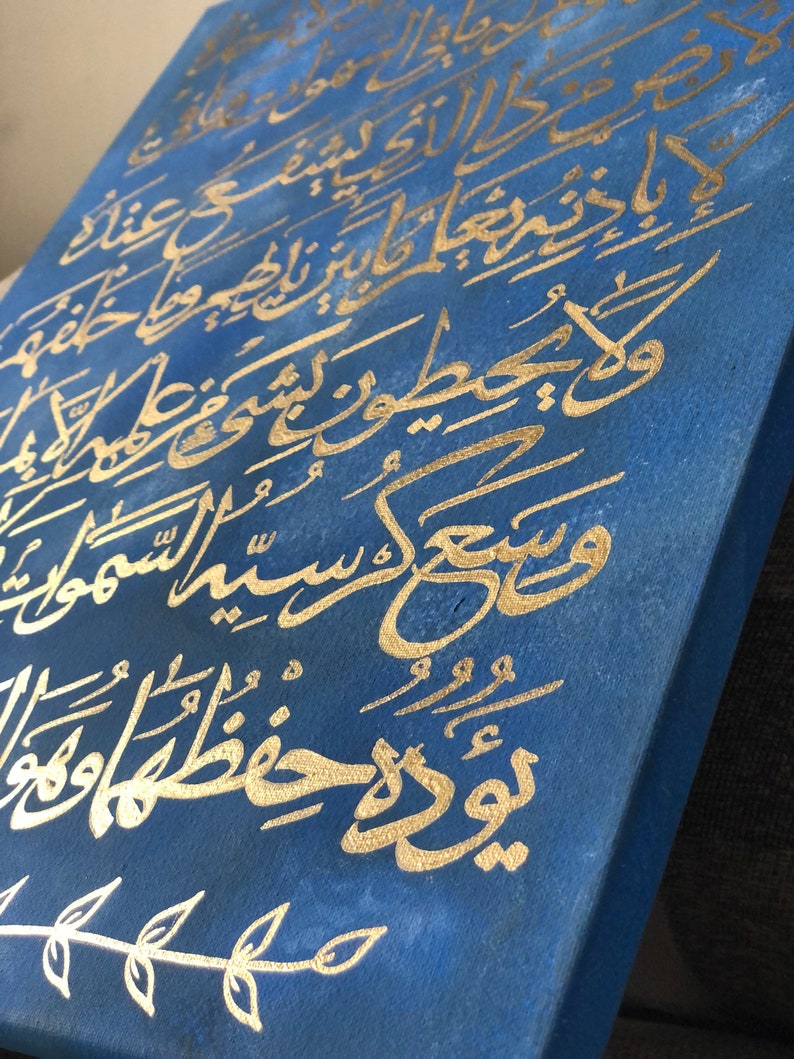 له ما في السموات وما في
الارض من ذا الذي يشفع عنده
إلا بإذنه يعلم ما بين ايديهم وما خلفهم
ولا يحيطون بشيء من علمه إلا بما
وسع كرسيه السموات
يؤده حفظهما وهو